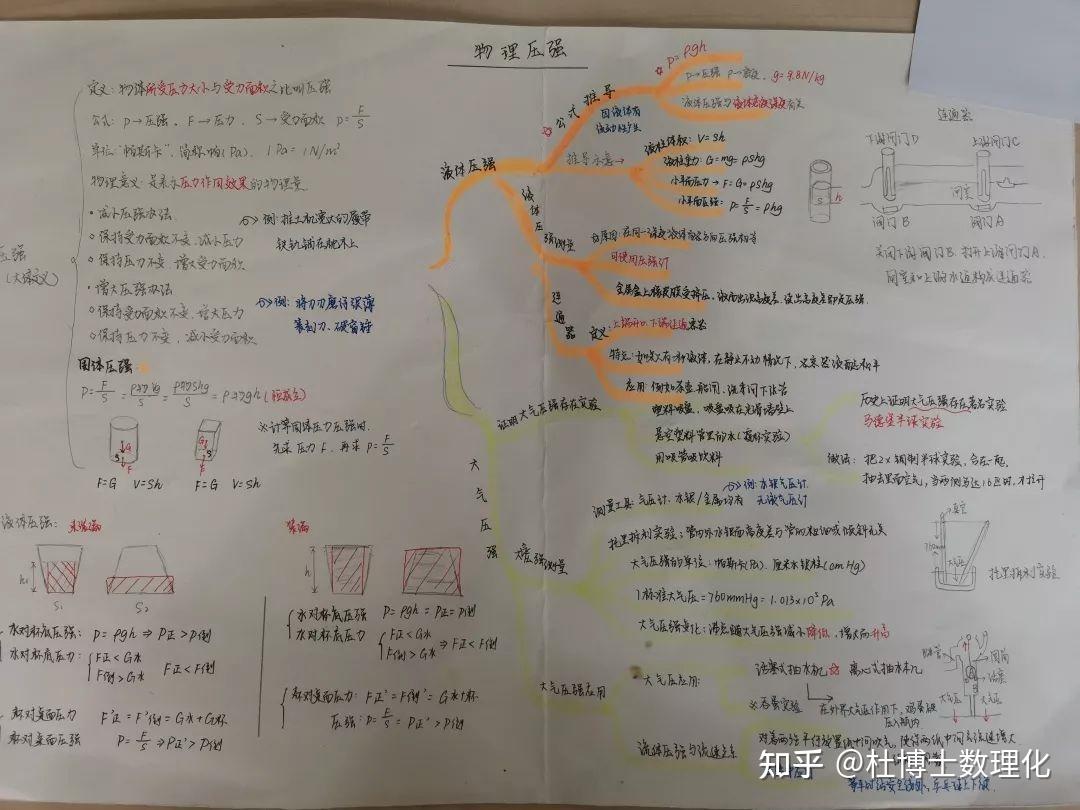 物理压强
定义: 物体所受压力大小与受力面积之比叫压强
公式: P→压强, F→压力, S→受力面积 P=F/S
单位: "帕斯卡", 简称帕(Pa), 1Pa=1N/m²
物理意义: 是表示压力作用效果的物理量
压强
(大体定义)
·减小压强办法
○保持受力面积不变, 减小压力
○保持压力不变, 增大受力面积
例: 推土机宽大的履带
铁轨铺在枕木上
·增大压强办法
○保持受力面积不变, 增大压力
○保持压力不变, 减小受力面积
例: 将刀刀磨得很薄
固体压强
※计算固体压力压强时,
先求压力F, 再求P=F/S
G
S
F
G
S
F
F=G V=Sh
F=G V=Sh
液体压强: 未装满
装满
h
S₁
S₂
h
水对杯底压强: P=ρgh⇒P正>P倒
水对杯底压力: F正<G水
F倒>G水
F正<F倒
杯对桌面压力 F'正=F'倒=G水+G杯
杯对桌面压强 P=F/S⇒P正'>P倒'
水对杯底压强 P=ρgh=P正=P倒
水对杯底压力 F正<G水
F倒>G水
⇒F正<F倒
杯对桌面压力: F正'=F倒'=G水+杯
压强: P=F/S=P正'>P倒'
液体压强
公式推导
因液体有
流动性产生
☆P=ρgh
P→压强 ρ→密度, g=9.8N/kg
液体压强与液体密度深度有关
推导示意→
液柱体积: V=Sh
液柱重力: G=mg=ρShg
小平面压力→F=G=ρShg
小平面压强: P=F/S=ρhg
S
h
液体压强测量
原因: 在同一深度液体向各方向压强相等
可使用压强计
金属盒上橡皮膜受挤压, 液面出现高度差, 读出高度差即反压强.
连通器
定义: 上端开口下端连通容器
特点: 如只有一种液体, 在静止不动情况下, 各容器液面总相平
应用: 例如茶壶, 船闸, 洗手间下水管
连通器
下游闸门D
上游闸门C
闸室
闸门B
闸门A
关闭下游闸门B. 打开上游闸门A.
闸室和上游水道构成连通器
大气压强
证明大气压强存在实验
塑料吸盘, 吸盘吸在光滑墙壁上
悬空塑料管里的水(覆杯实验)
用吸管吸饮料
历史上证明大气压强存在著名实验
马德堡半球实验
做法: 把2×铜制半球实验, 合在一起,
抽去里面空气, 当两侧马达16匹时, 才拉开
大气压强测量
例: 水银气压计.
无液气压计
测量工具: 气压计, 水银/金属均有
托里拆利实验: 管内外水银面高度差与管的粗细或倾斜无关
大气压强的单位: 帕斯卡(Pa). 厘米水银柱(cmHg)
1标准大气压=760mmHg=1.013×10⁵Pa
大气压强变化: 沸点随大气压强减小降低, 增大而升高
真空
760mm
大气压
托里拆利实验
大气压强应用
大气压应用:
活塞式抽水机 ☆ 离心式抽水机
※吞蛋实验
在外界大气压作用下, 鸡蛋被
压入瓶内
圆筒
活塞
大气压
大气压
流体压强与流速关系
对着两张平行放置纸中间吹气, 使得两纸中间气流速增大
知乎 @杜博士数理化